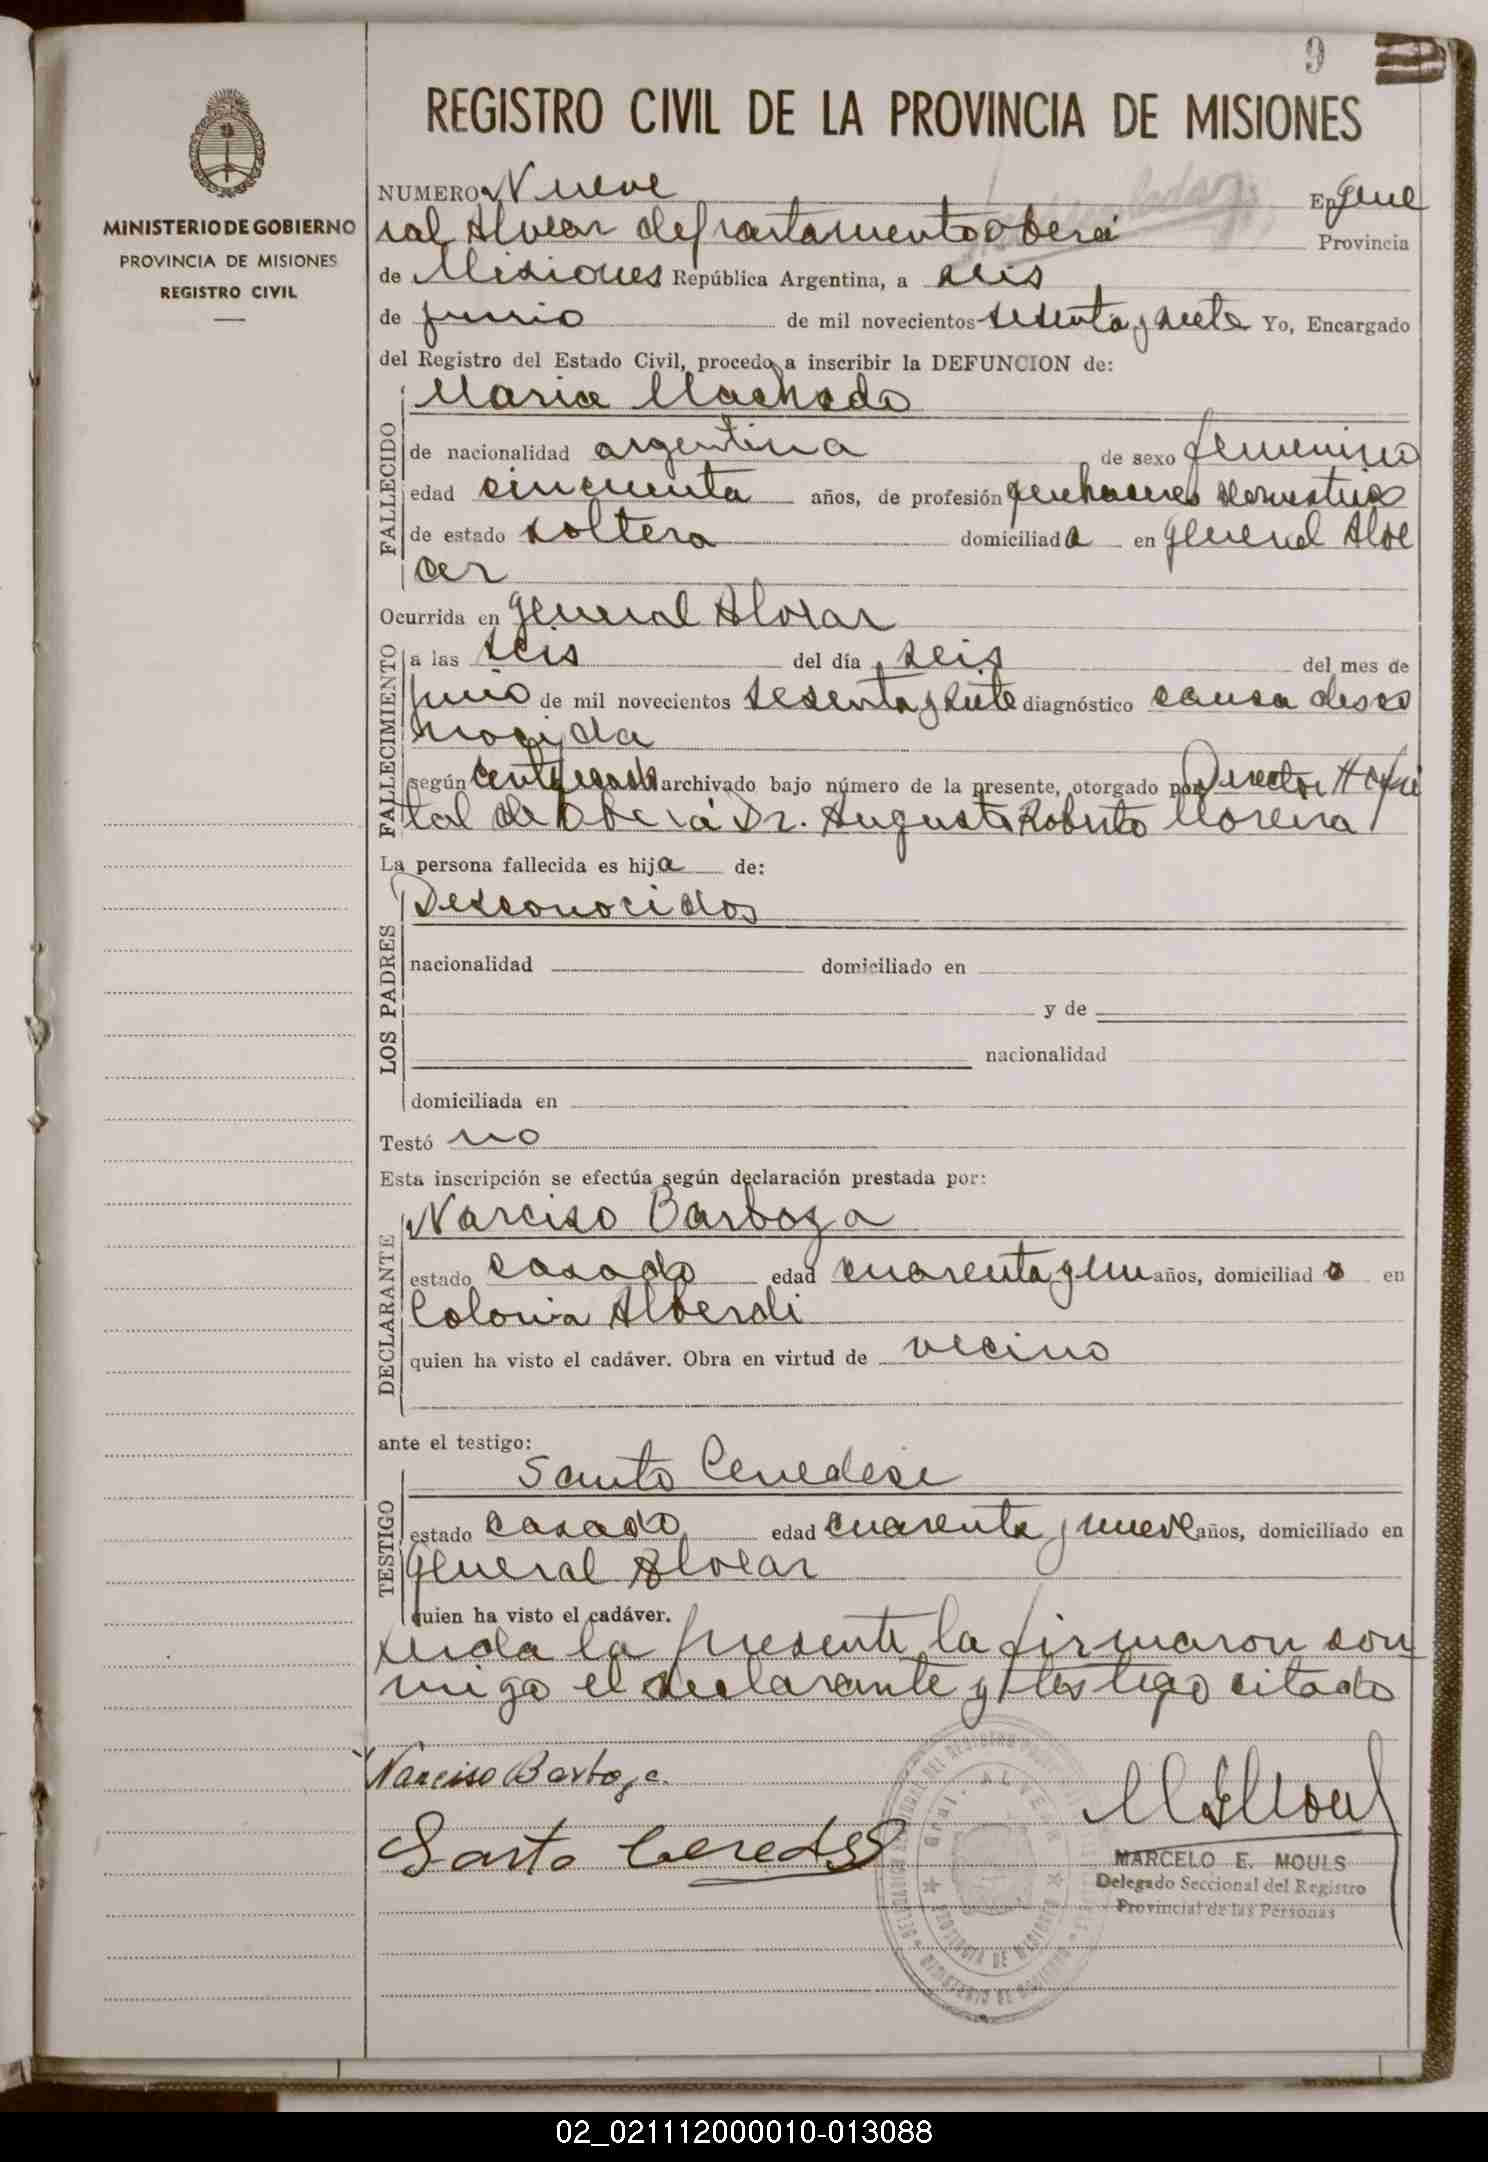 9
REGISTRO CIVIL DE LA PROVINCIA DE MISIONES
MINISTERIO DE GOBIERNO
PROVINCIA DE MISIONES
REGISTRO CIVIL
NUMERO Nueve En gene
ral Alvear departamento Oberá Provincia
de Misiones República Argentina, a seis
de junio de mil novecientos sesenta y siete Yo, Encargado
del Registro del Estado Civil, procedo a inscribir la DEFUNCION de:
FALLECIDO
Maria Machado
de nacionalidad argentina de sexo femenino
edad cincuenta años, de profesión quehaceres domesticos
de estado soltera domiciliada en general Alve
ar
Ocurrida en general Alvear
FALLECIMIENTO
a las seis del día seis del mes de
junio de mil novecientos sesenta y siete diagnóstico causa desco
nocida
según certificado archivado bajo número de la presente, otorgado por Director Hospi
tal de Oberá Dr. Augusto Roberto Moreira
La persona fallecida es hija de:
LOS PADRES
Desconocidos
nacionalidad domiciliado en
y de
nacionalidad
domiciliada en
Testó no
Esta inscripción se efectúa según declaración prestada por:
DECLARANTE
Narciso Barboza
estado casado edad cuarenta y un años, domiciliado en
Colonia Alberdi
quien ha visto el cadáver. Obra en virtud de vecino
ante el testigo:
TESTIGO
Santo Cenedese
estado casado edad cuarenta y nueve años, domiciliado en
general Alvear
quien ha visto el cadáver.
Leida la presente la firmaron con
migo el declarante y testigo citado
Narciso Barboza
Santo
Gral. ALVEAR
PROVINCIA DE MISIONES
MINISTERIO DE GOBIERNO
MARCELO E. MOULS
Delegado Seccional del Registro
Provincial de las Personas
02_021112000010-013088